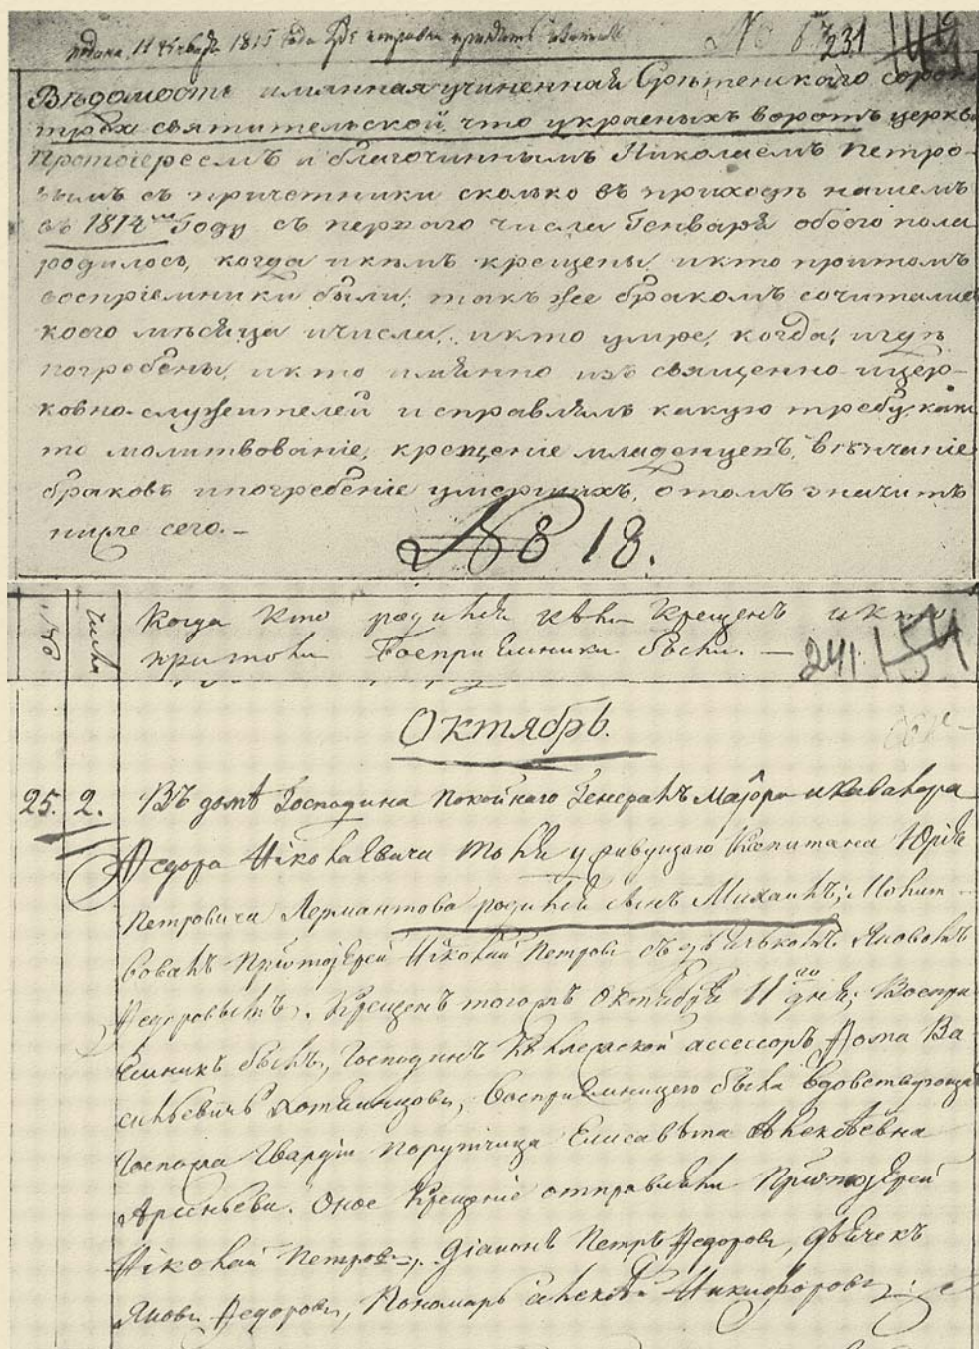 подана 11 Генваря 1815 года
№ 6 231
Вѣдомость имянная учиненная Срѣтенскаго сорок
трехъ святительской, что у красныхъ воротъ церкви
Протоіереемъ и благочиннымъ Николаемъ Петро-
вымъ съ причетники сколько въ приходѣ нашемъ
въ 1814мъ Году съ перваго числа Генваря обоего пола
родилось, когда и кѣмъ крещены, и кто притомъ
восприемники были; такъ же бракомъ сочитались
коего мѣсяца и числа, и кто умре, когда, и гдѣ
погребены, и кто имянно изъ священно-и цер-
ковно-служителей исправлялъ какую требу, како
то молитвованіе, крещеніе младенцевъ, вѣнчаніе
браковъ и погребеніе умершихъ, о томъ значитъ
ниже сего.-
№ 18.
№ Числа Когда кто родился и кѣмъ крещенъ и кто
притомъ Восприемники были. —
241. 154
Октябрь.
25. 2. Въ домѣ Господина покойнаго Генералъ Маіора и Кавалера
Ѳедора Николаевича Толя у живущаго Капитана Юрія
Петровича Лермантова родился сынъ Михаилъ; Молит-
вовалъ Протоіерей Николай Петровъ съ дьячькомъ Яковомъ
Ѳедоровымъ, Крещенъ тогожъ Октября 11го дня; Воспри
емникъ былъ, Господинъ Коллежской ассессоръ Ѳома Ва
сильевичъ Хотяинцовъ, Восприемницею была Вдовствующа
Госпожа Гвардіи Порутчица Елисавѣта Алексѣевна
Арсеньева. Оное Крещеніе отправляли Протоіерей
Николай Петровъ, Діаконъ Петръ Ѳедоровъ, дьячекъ
Яковъ Ѳедоровъ, Пономарь Алексѣй Никифоровъ.